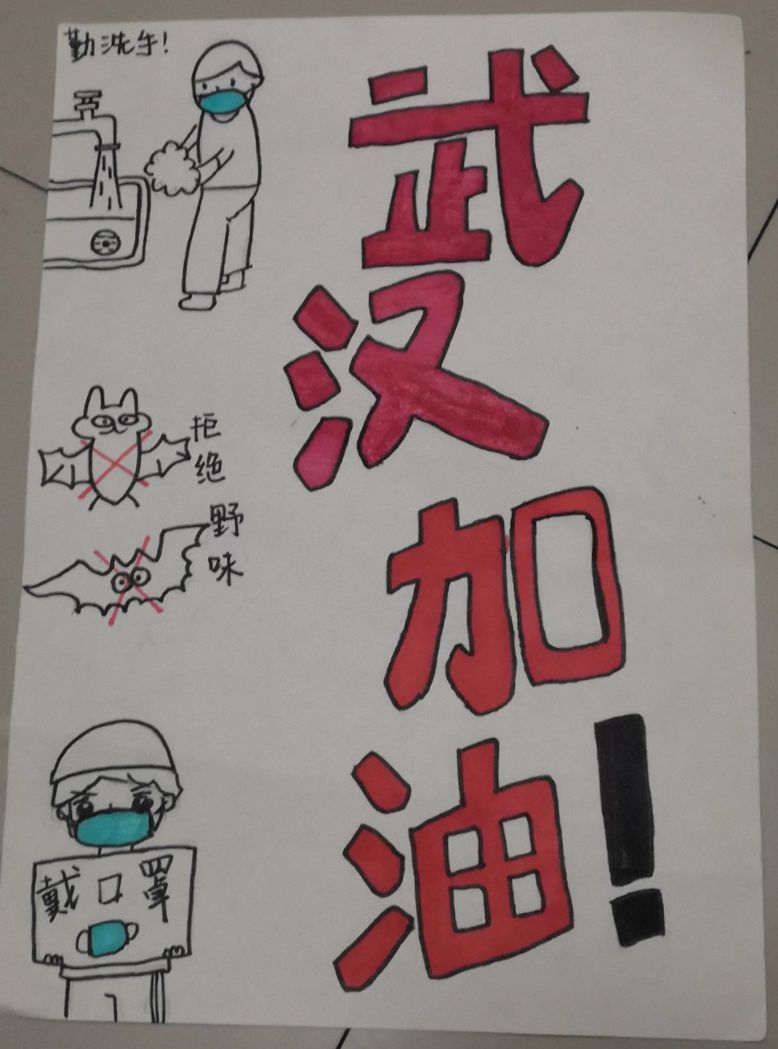 勤洗手!
武汉加油!
拒绝
野味
戴口罩